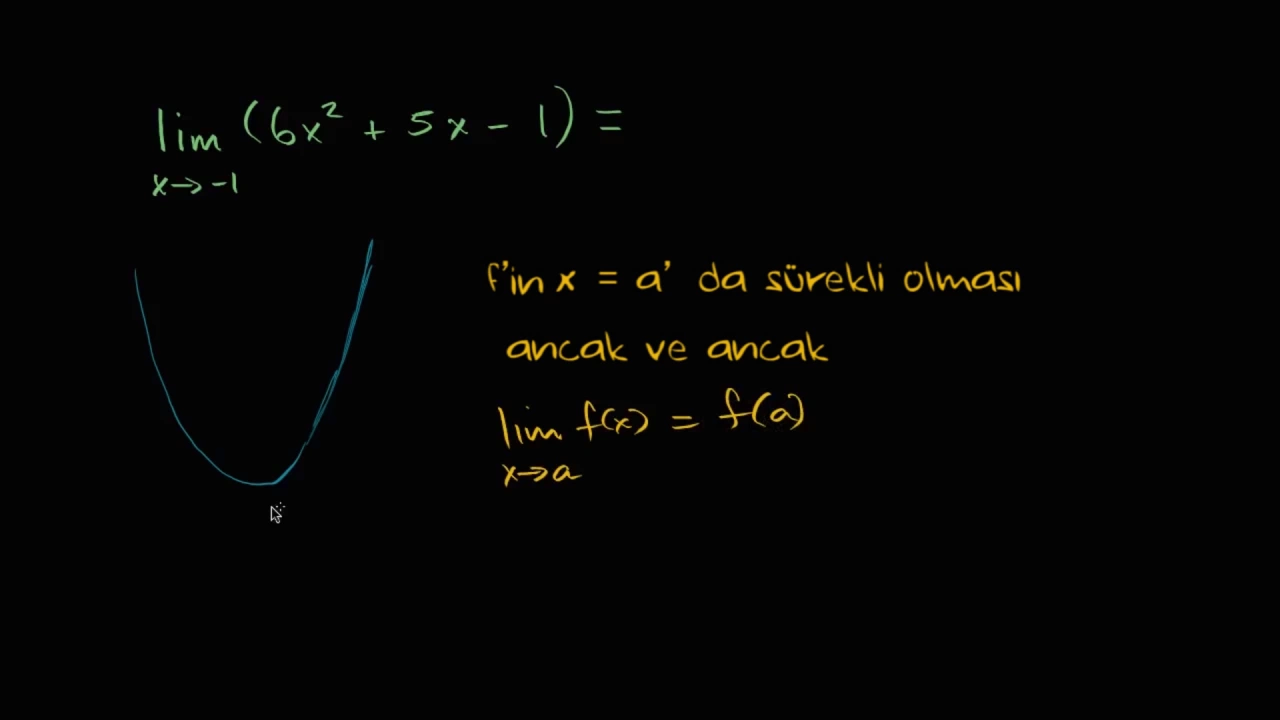 lim (6x² + 5x - 1) =
x→-1
f'in x = a' da sürekli olması
ancak ve ancak
lim f(x) = f(a)
x→a